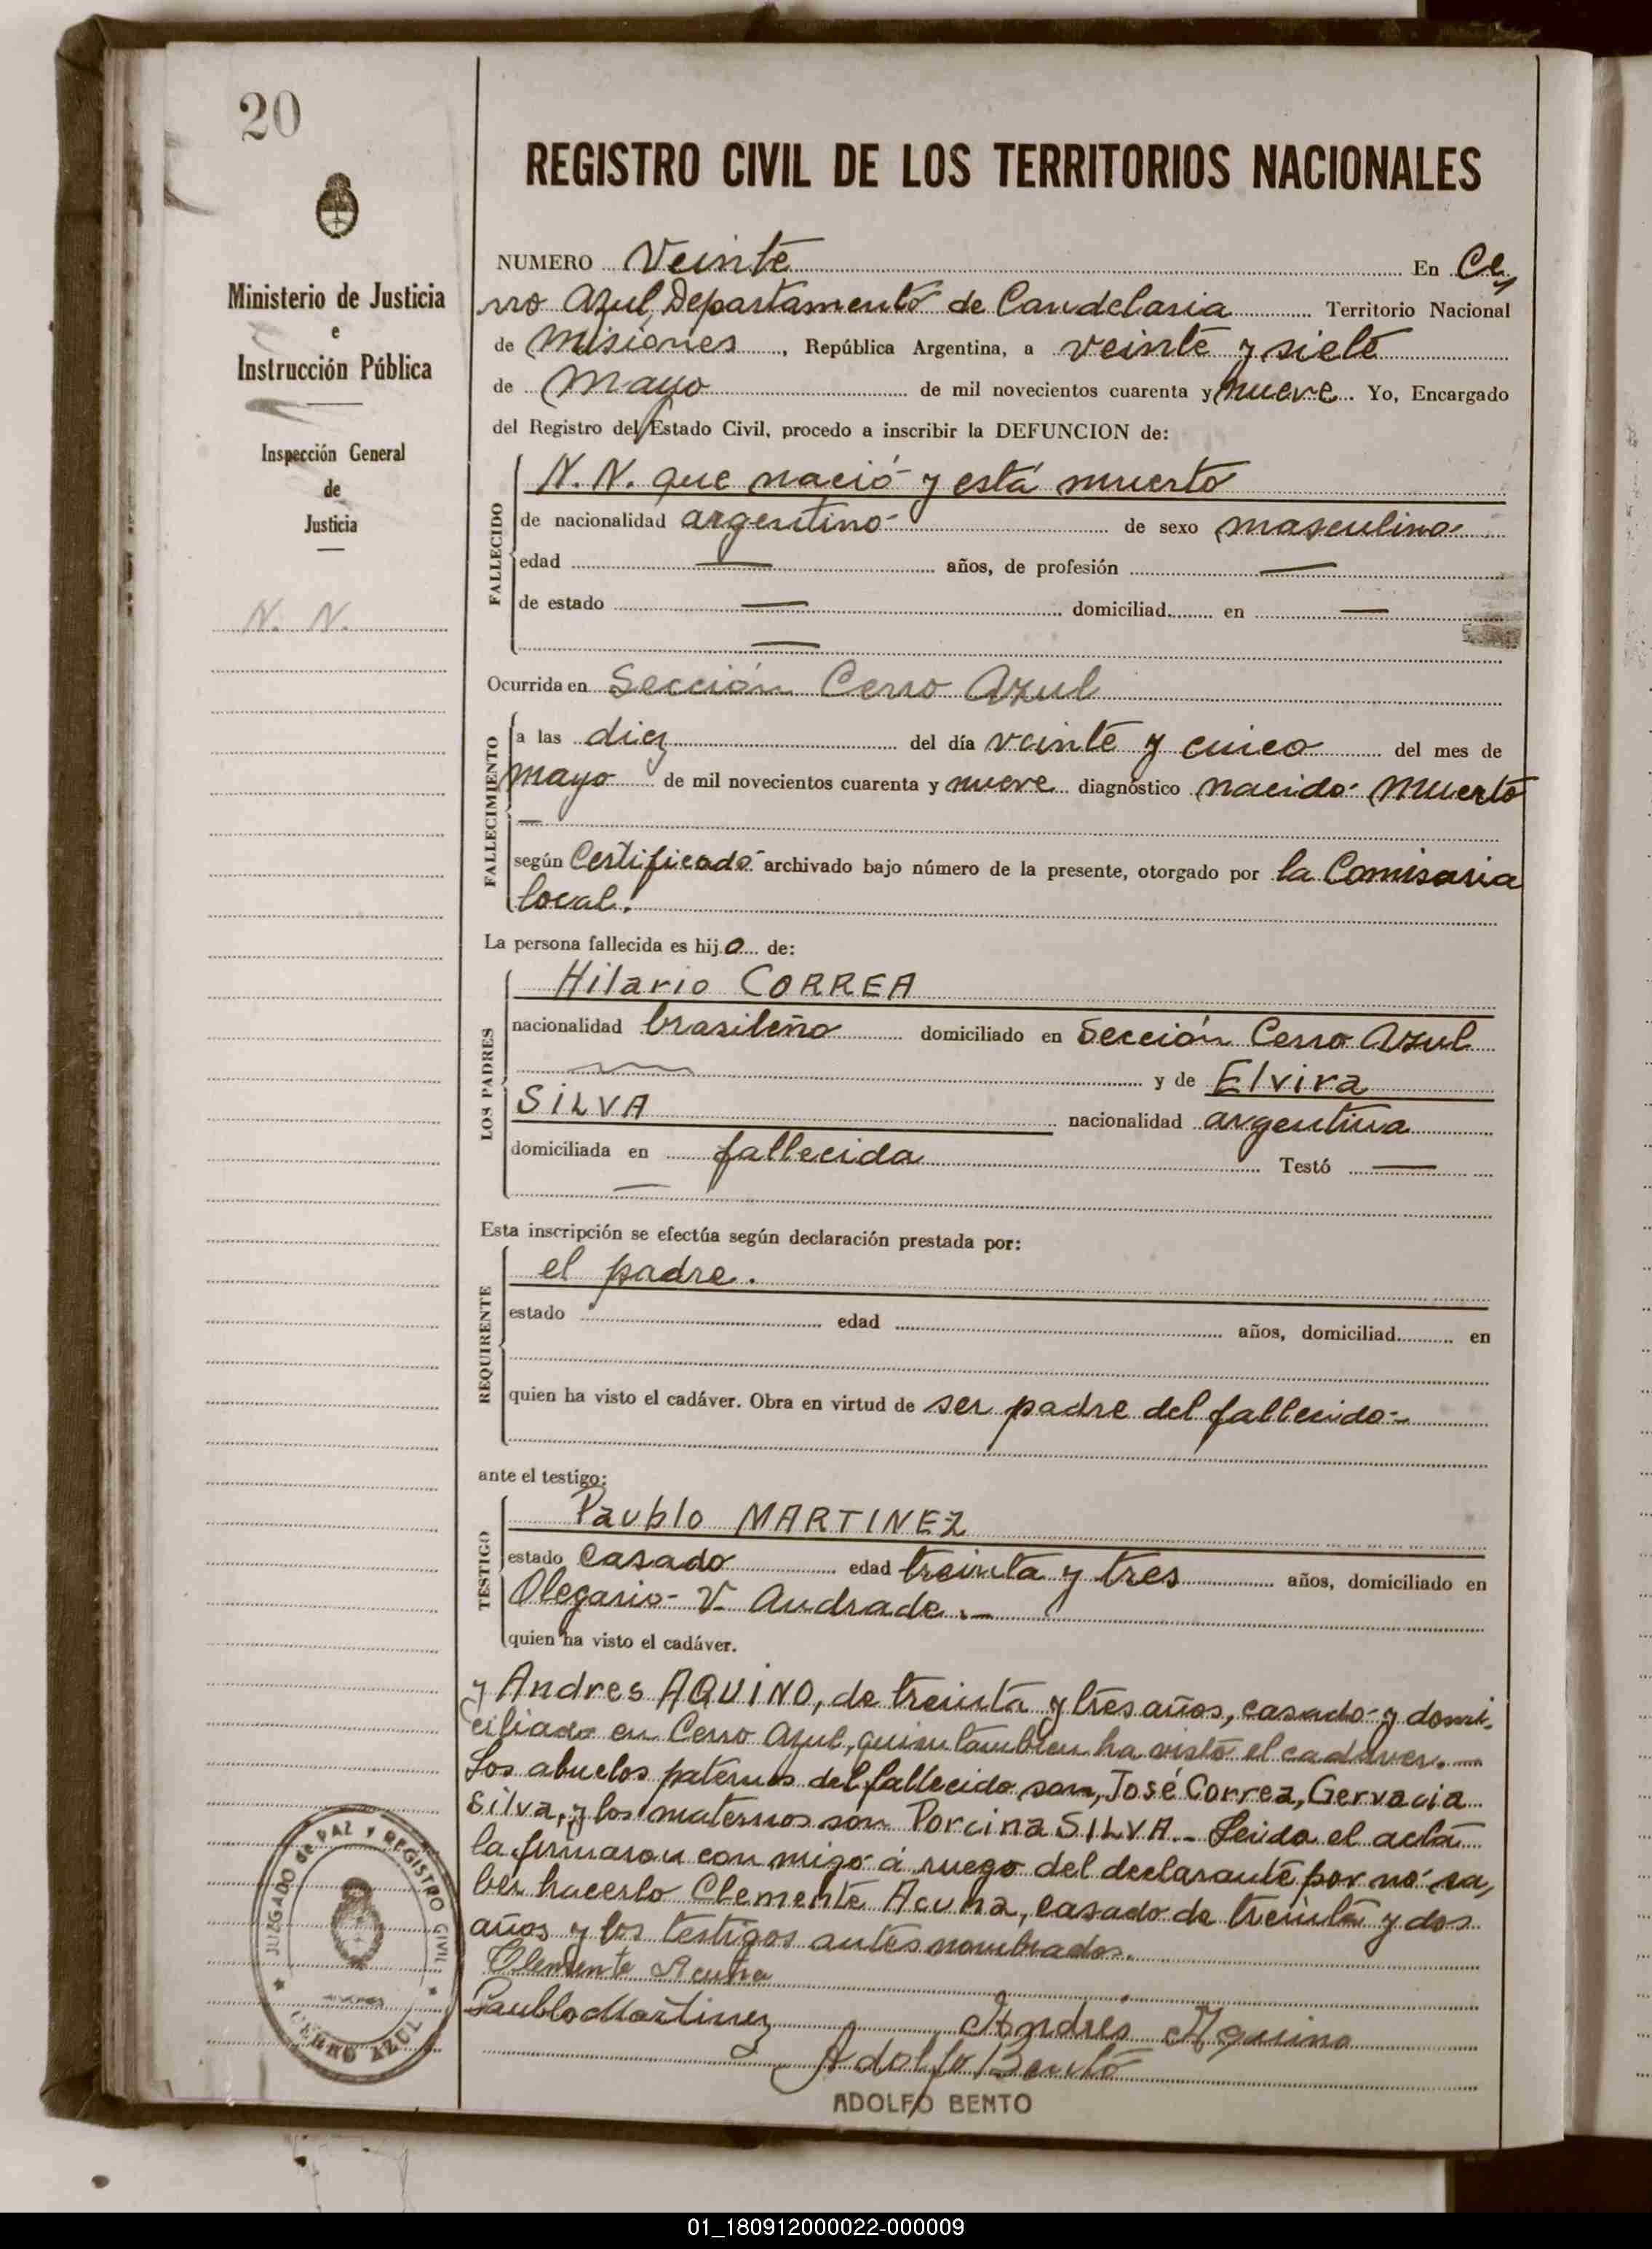 20
Ministerio de Justicia
e
Instrucción Pública
Inspección General
de
Justicia
N. N.
REGISTRO CIVIL DE LOS TERRITORIOS NACIONALES
NUMERO Veinte En Ce,
rro Azul, Departamento de Candelaria Territorio Nacional
de Misiones, República Argentina, a veinte y siete
de Mayo de mil novecientos cuarenta y nueve. Yo, Encargado
del Registro del Estado Civil, procedo a inscribir la DEFUNCION de:
FALLECIDO
N. N. que nació y está muerto
de nacionalidad argentino de sexo masculino
edad — años, de profesión —
de estado — domiciliad en —
—
Ocurrida en Sección Cerro Azul
FALLECIMIENTO
a las diez del día veinte y cinco del mes de
mayo de mil novecientos cuarenta y nueve diagnóstico nacido muerto
—
según Certificado archivado bajo número de la presente, otorgado por la Comisaria
local.
La persona fallecida es hijo de:
LOS PADRES
Hilario CORREA
nacionalidad brasileño domiciliado en Sección Cerro Azul
y de Elvira
SILVA nacionalidad argentina
domiciliada en fallecida Testó —
—
Esta inscripción se efectúa según declaración prestada por:
REQUIRENTE
el padre.
estado edad años, domiciliad en
quien ha visto el cadáver. Obra en virtud de ser padre del fallecido-
ante el testigo:
TESTIGO
Paublo MARTINEZ
estado Casado edad treinta y tres años, domiciliado en
Olegario V. Andrade.-
quien ha visto el cadáver.
y Andres AQUINO, de treinta y tres años, casado y domi,
ciliado en Cerro Azul, quien tambien ha visto el cadaver.—
Los abuelos paternos del fallecido son, José Correa, Gervacia
Silva, y los maternos son Porcina SILVA.- Leida el acta
la firmaron conmigo á ruego del declarante por nó sa,
ber hacerlo Clemente Acuña, casado de treinta y dos
años y los testigos antes nombrados.
Clemente Acuña
Paublo Martinez Andrés Aquino
Adolfo Bento
ADOLFO BENTO
JUZGADO de PAZ Y REGISTRO CIVIL
CERRO AZUL
01_180912000022-000009